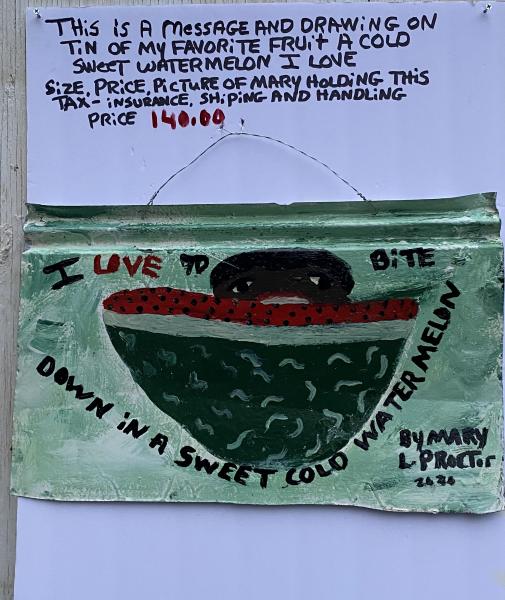 THIS IS A MESSAGE AND DRAWING ON
TIN OF MY FAVORITE FRUIT A COLD
SWEET WATERMELON I LOVE
SIZE, PRICE, PICTURE OF MARY HOLDING THIS
TAX- INSURANCE, SHIPING AND HANDLING
PRICE 140.00
I LOVE TO BITE
DOWN IN A SWEET COLD WATERMELON
BY MARY
L PROCTOR
2020